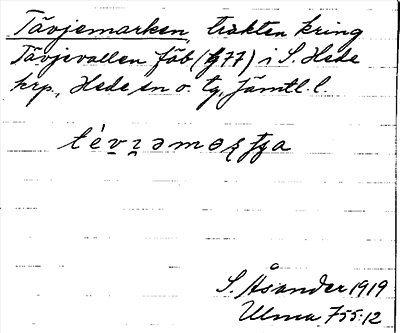 Tåvjemarken, trakten kring
Tåvjevallen fäb (77) i S. Hede
krp., Hede sn o. tg, Jämtl. l.
S. Åsander 1919
Ulma 755:12